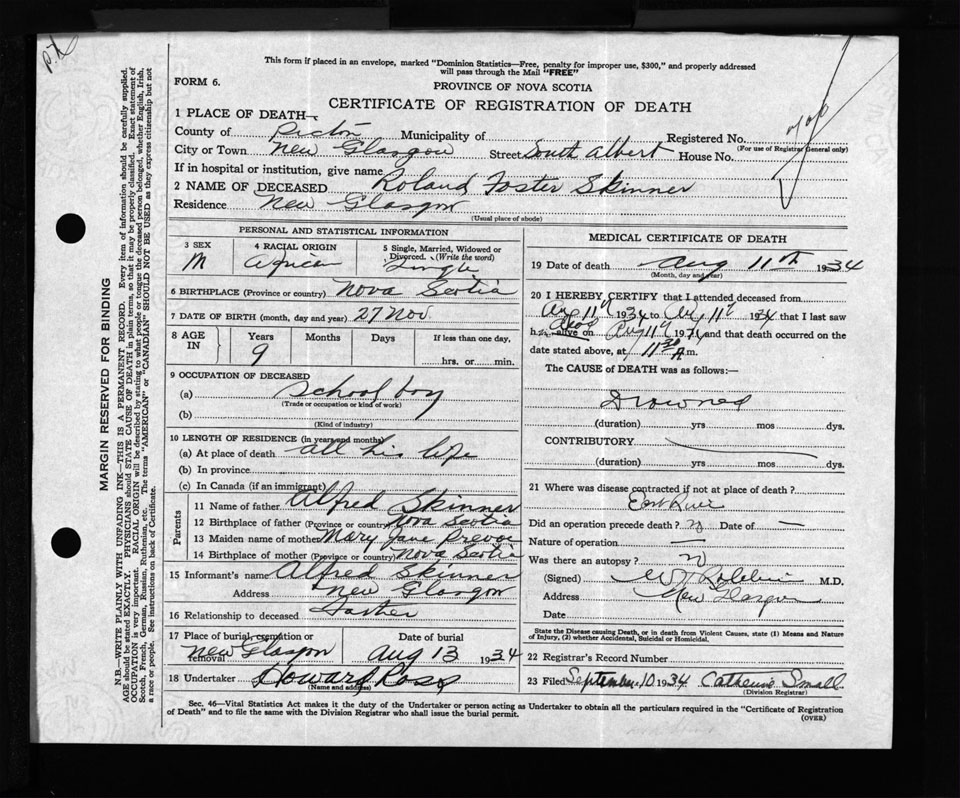 This form if placed in an envelope, marked "Dominion Statistics—Free, penalty for improper use, $300," and properly addressed
will pass through the Mail "FREE"
FORM 6.
PROVINCE OF NOVA SCOTIA
CERTIFICATE OF REGISTRATION OF DEATH
1 PLACE OF DEATH—
County of Pictou Municipality of Registered No.
(For use of Registrar General only)
City or Town New Glasgow Street South Albert House No.
If in hospital or institution, give name
2 NAME OF DECEASED Roland Foster Skinner
Residence New Glasgow
(Usual place of abode)
PERSONAL AND STATISTICAL INFORMATION
3 SEX 4 RACIAL ORIGIN 5 Single, Married, Widowed or
Divorced. (Write the word)
M African Single
6 BIRTHPLACE (Province or country) Nova Scotia
7 DATE OF BIRTH (month, day and year) 27 Nov.
8 AGE IN Years Months Days If less than one day,
9 hrs. or min.
9 OCCUPATION OF DECEASED
(a) School boy
(Trade or occupation or kind of work)
(b)
(Kind of industry)
10 LENGTH OF RESIDENCE (in years and months)
(a) At place of death all his life
(b) In province
(c) In Canada (if an immigrant)
Parents
11 Name of father Alfred Skinner
12 Birthplace of father (Province or country) Nova Scotia
13 Maiden name of mother Mary Jane
14 Birthplace of mother (Province or country) Nova Scotia
15 Informant's name Alfred Skinner
Address New Glasgow
16 Relationship to deceased Father
17 Place of burial, cremation or removal Date of burial
New Glasgow Aug 13 1934
18 Undertaker Howard Ross
(Name and address)
MEDICAL CERTIFICATE OF DEATH
19 Date of death Aug 11th 1934
(Month, day and year)
20 I HEREBY CERTIFY that I attended deceased from
Aug 11th 1934 to Aug 11th 1934 that I last saw
h alive on Aug 11th 1934 and that death occurred on
date stated above, at 11 30 A m.
The CAUSE of DEATH was as follows:—
Drowned
(duration) yrs mos dys.
CONTRIBUTORY
(duration) yrs mos dys.
21 Where was disease contracted if not at place of death?
East River
Did an operation precede death? no Date of —
Nature of operation —
Was there an autopsy? no
(Signed) M.D.
Address New Glasgow
Date
State the Disease causing Death, or in death from Violent Causes, state (1) Means and Nature
of Injury, (2) whether Accidental, Suicidal or Homicidal.
22 Registrar's Record Number
23 Filed September 10 1934 Catherine Small
(Division Registrar)
Sec. 46—Vital Statistics Act makes it the duty of the Undertaker or person acting as Undertaker to obtain all the particulars required in the "Certificate of Registration
of Death" and to file the same with the Division Registrar who shall issue the burial permit.
(OVER)
MARGIN RESERVED FOR BINDING
N.B.—WRITE PLAINLY WITH UNFADING INK—THIS IS A PERMANENT RECORD. Every item of information should be carefully supplied.
AGE should be stated EXACTLY. PHYSICIANS should STATE CAUSE OF DEATH in plain terms, so that it may be properly classified. Exact statement of
OCCUPATION is very important. RACIAL ORIGIN will be described by stating to what people or tongue the deceased person belonged, whether English, Irish,
Scotch, French, German, Russian, Ruthenian, etc. The terms "AMERICAN" or "CANADIAN" SHOULD NOT BE USED as they express citizenship but not
a race or people. See instructions on back of Certificate.